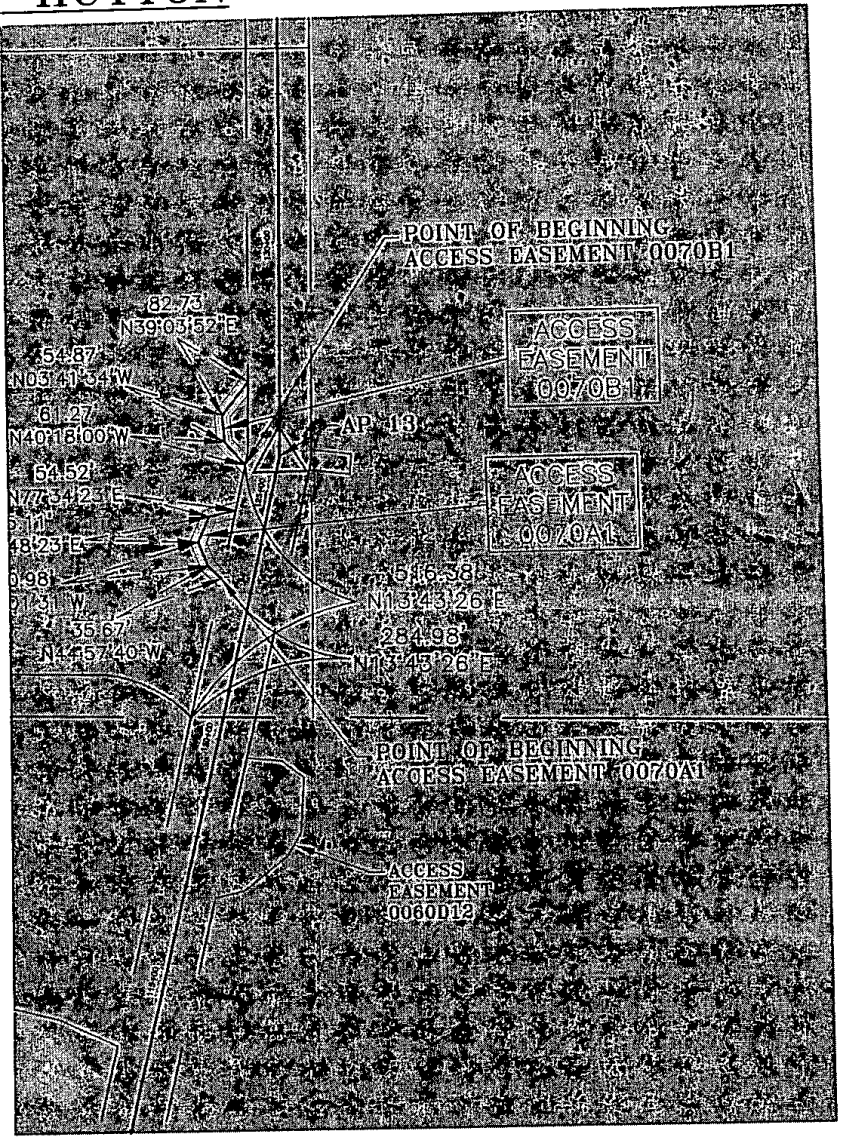 HUTTON
POINT OF BEGINNING
ACCESS EASEMENT 0070B1
82.73
N39°03'52"E
54.87
N03°41'34"W
61.27
N40°18'00"W
54.52
N77°34'23"E
48'23"E
0.98
31"W
35.67
N44°57'40"W
ACCESS
EASEMENT
0070B1
AP 13
ACCESS
EASEMENT
0070A1
516.38
N13°43'26"E
284.98
N13°43'26"E
POINT OF BEGINNING
ACCESS EASEMENT 0070A1
ACCESS
EASEMENT
0060D12